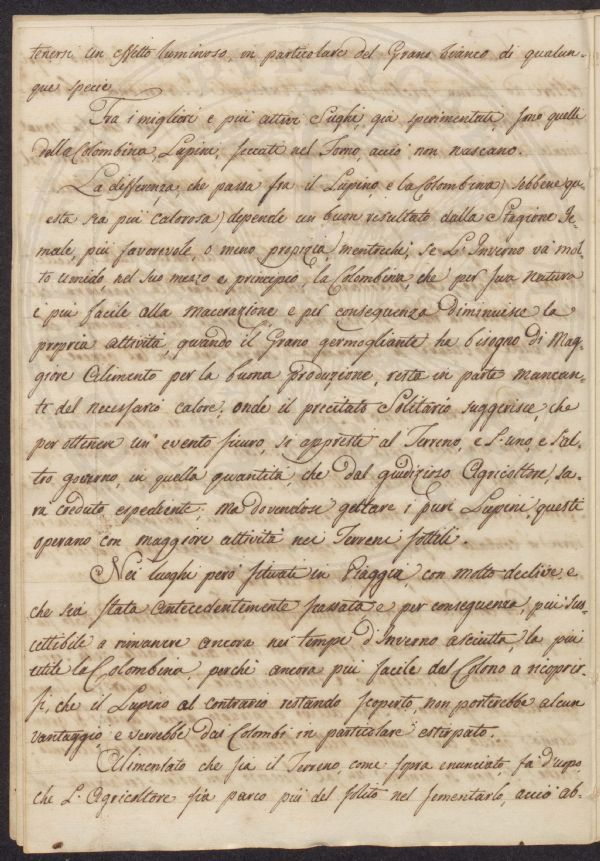 tenersi un effetto luminoso, in particolare del Grano bianco di qualun-
que specie.
Tra i migliori e più attivi Sughi, già sperimentati, sono quelli
della Colombina, Lupini, seccati nel Forno, acciò non nascano.
La differenza, che passa fra il Lupino e la Colombina (sebbene que-
sta sia più calorosa) depende un buon resultato dalla Stagione Je-
male, più favorevole, o meno propizia, mentrechè, se L'Inverno và mol-
to umido nel suo mezzo e principio, la Colombina, che per sua natura
è più facile alla macerazione e per conseguenza diminuisce la
propria attività, quando il Grano germogliante ha bisogno di Mag-
giore alimento per la buona produzione, resta in parte mancan-
te del necessario calore, onde il precitato Solitario suggerisce, che
per ottenere un evento sicuro, si appresti al Terreno, e L'uno, e L'al-
tro governo, in quella quantità, che dal giudizioso Agricoltore, sa-
rà creduto espediente; ma dovendosi gettare i puri Lupini, questi
operano con maggiore attività nei Terreni sottili.
Nei luoghi però situati in Piaggia, con molto declive, e
che sia stata antecedentemente scassata e per conseguenza, più sus-
cettibile a rimanere ancora nei tempi d'Inverno asciutta, la più
utile la Colombina, perchè ancora più facile dal Colono a ricoprir-
si, che il Lupino al contrario restando scoperto, non porterebbe alcun
vantaggio, e verrebbe dai Colombi in particolare estirpato.
Alimentato che sia il Terreno, come sopra enunciato, fa d'uopo,
che L'Agricoltore sia parco più del solito nel sementarlo, acciò ab-